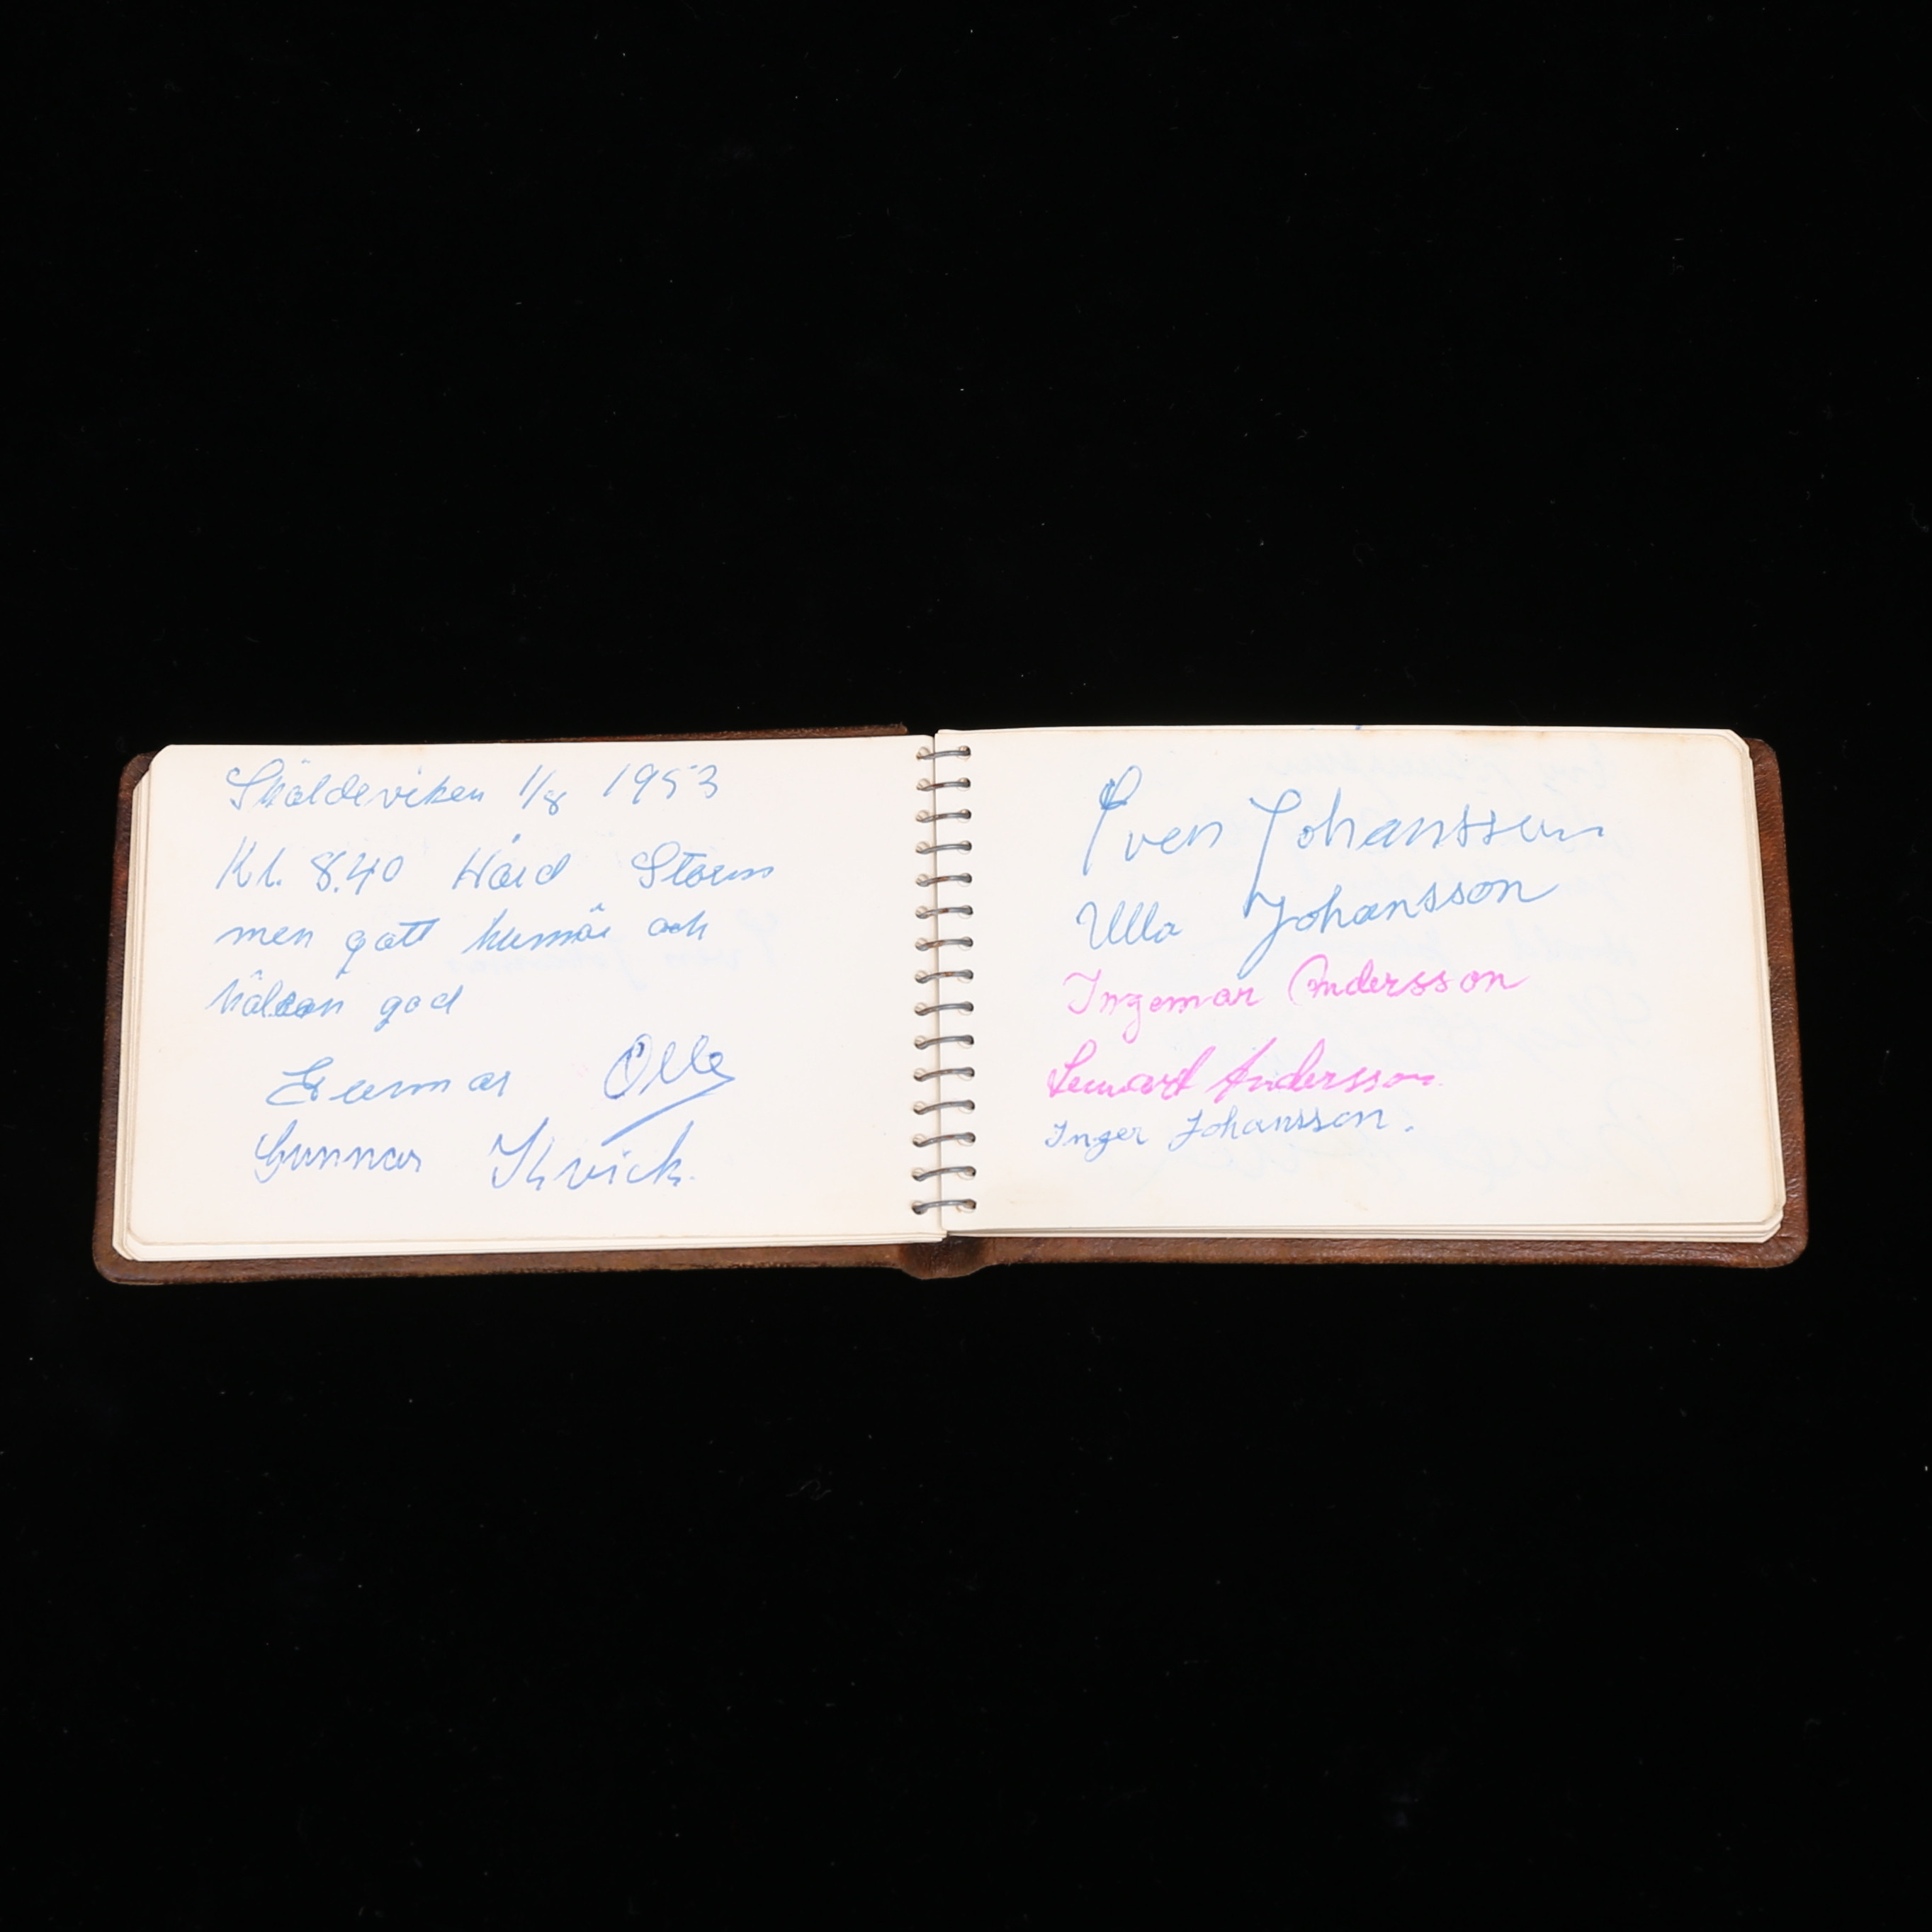 Sköldeviken 1/8 1953
Kl. 8.40 Hård Storm
men gott humör och
hälsan god
Gunnar Olle
Gunnar Kvick.
Sven Johansson
Ulla Johansson
Ingemar Andersson
Lennart Andersson.
Inger Johansson.